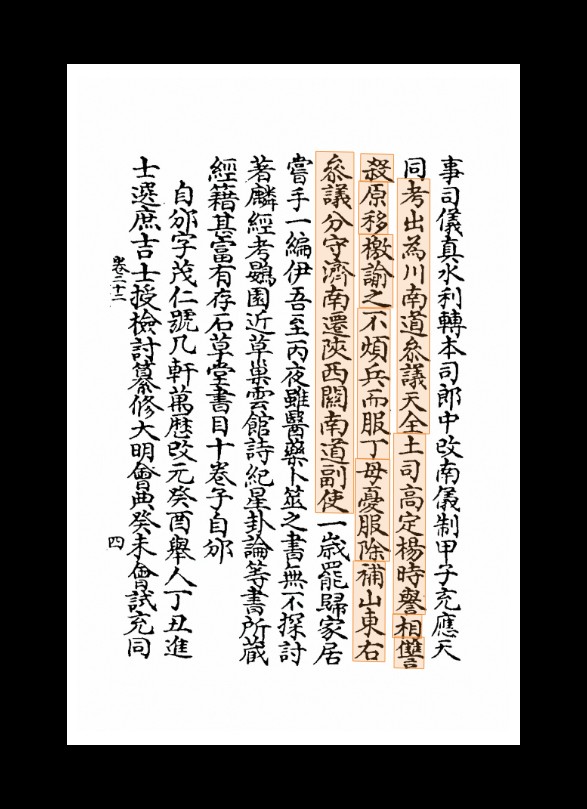 事司儀真水利轉本司郎中改南儀制甲子充應天
同考出為川南道叅議天全土司高定楊時譽相讐
殺原移檄諭之不煩兵而服丁母憂服除補山東右
叅議分守濟南遷陝西關南道副使一歲罷歸家居
嘗手一編伊吾至丙夜雖醫藥卜筮之書無不探討
著麟經考鷃園近草巢雲館詩紀星卦論等書所蔵
經籍甚富有存石草堂書目十卷子自邠
自邠字茂仁號几軒萬歷改元癸酉舉人丁丑進
士選庶吉士授檢討纂修大明會典癸未會試充同
卷二十二
四